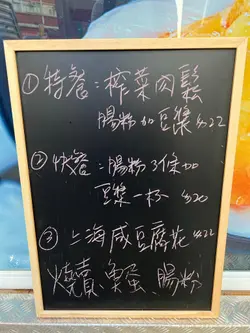 ①特餐：榨菜肉鬆
腸粉加豆漿 $22
②快餐：腸粉3條加
豆漿一杯 $20
③上海咸豆腐花 $22
燒賣、魚蛋、腸粉